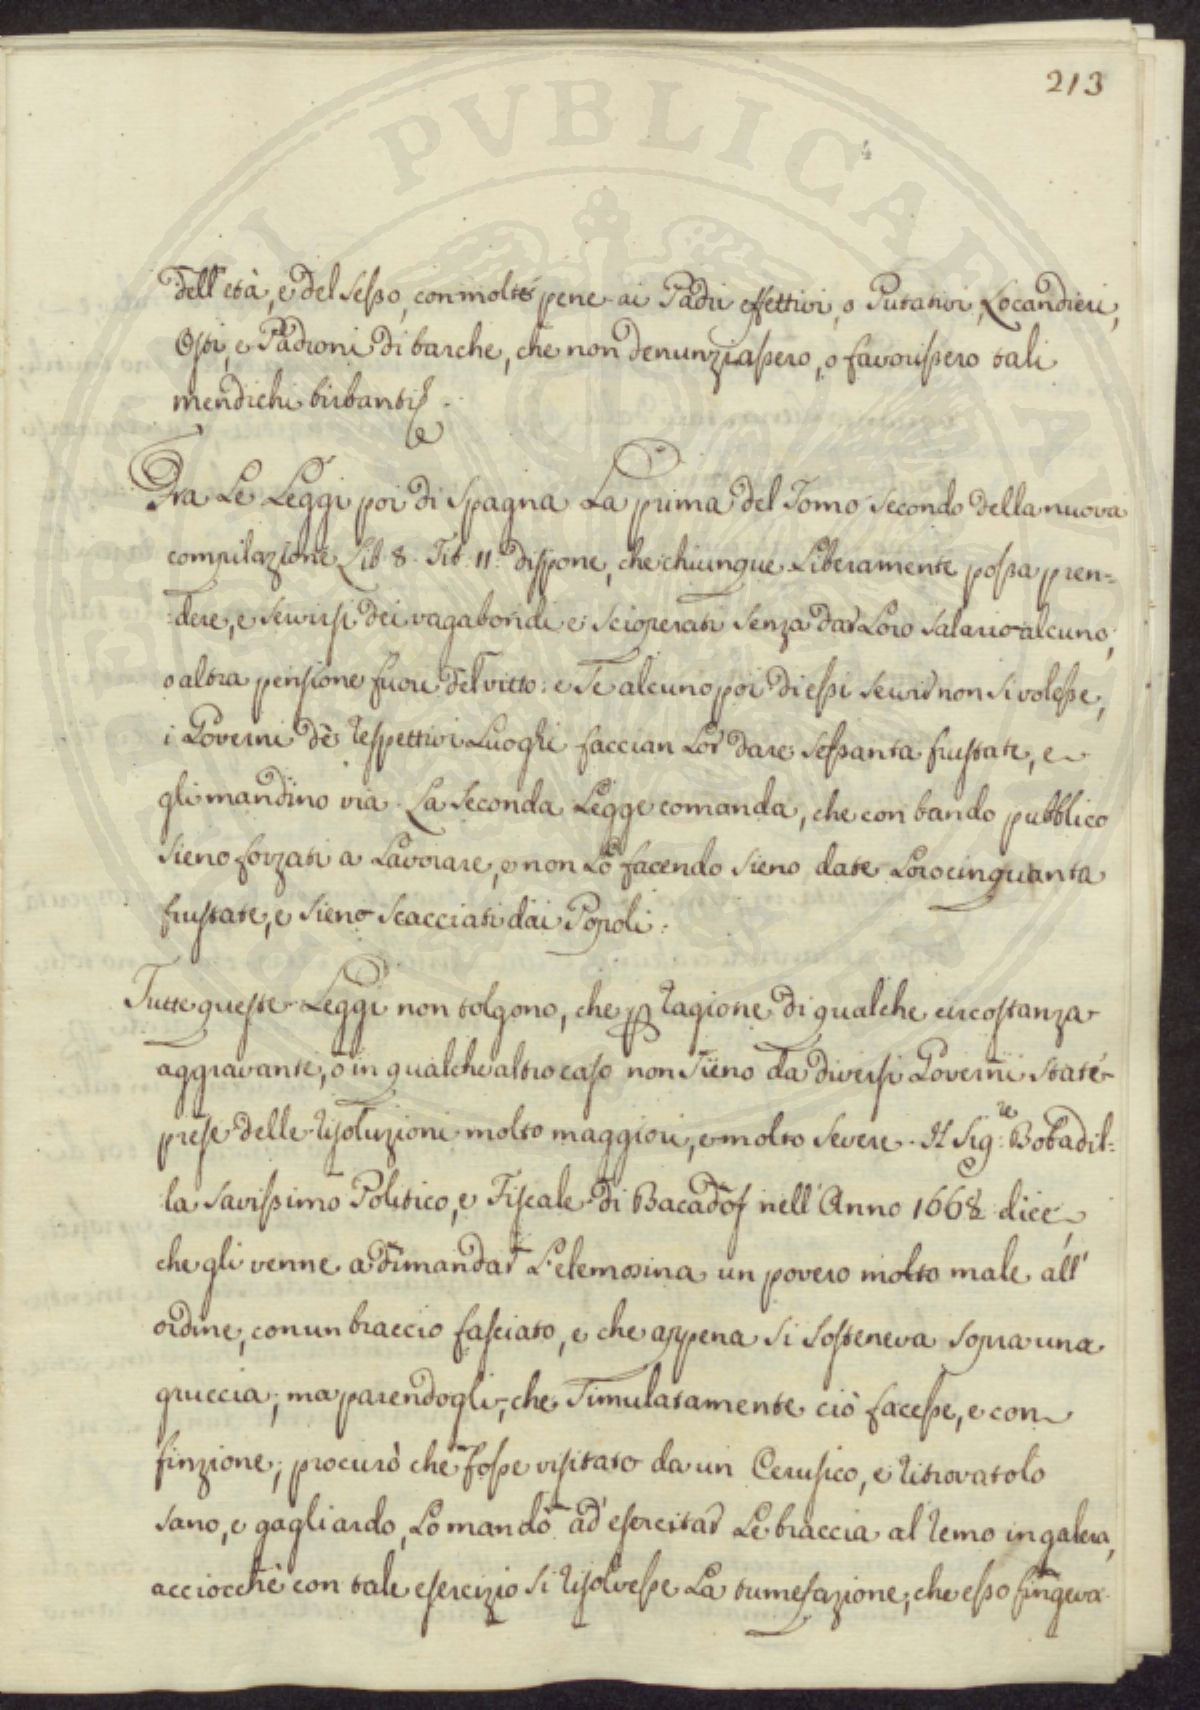 213
dell'età, e del sesso, con molte pene ai Padri effettivi, o Putativi, Locandieri,
Osti, e Padroni di barche, che non denunziassero, o favorissero tali
mendichi birbanti.
Tra Le Leggi poi di Spagna La prima del Tomo secondo della nuova
compilazione Lib. 8. Tit. 11. dispone, che chiunque Liberamente possa pren=
=dere, e servirsi dei vagabondi e scioperati senza dar Loro salario alcuno,
o altra pensione fuori del vitto: e se alcuno poi di essi servir non si volesse,
i Governi de' respettivi Luoghi faccian Lor dare sessanta frustate, e
gli mandino via. La seconda Legge comanda, che con bando pubblico
sieno forzati a Lavorare, e non Lo facendo sieno date Loro cinquanta
frustate, e sieno scacciati dai Popoli.
Tutte queste Leggi non tolgono, che per ragione di qualche circostanza
aggravante, o in qualche altro caso non sieno da diversi Governi state
prese delle risoluzioni molto maggiori, e molto severe. Il Sig.re Bobadil=
la savissimo Politico, e Fiscale di Bacados nell'Anno 1668 dice,
che gli venne a dimandar L'elemosina un povero molto male all'
ordine, con un braccio fasciato, e che appena si sosteneva sopra una
gruccia; ma parendogli, che simulatamente ciò facesse, e con
finzione; procurò che fosse visitato da un Cerusico, e ritrovatolo
sano, e gagliardo, Lo mandò ad esercitar Le braccia al remo in galera,
acciocchè con tale esercizio si risolvesse La tumefazione, che esso fingeva.
PUBLICAE